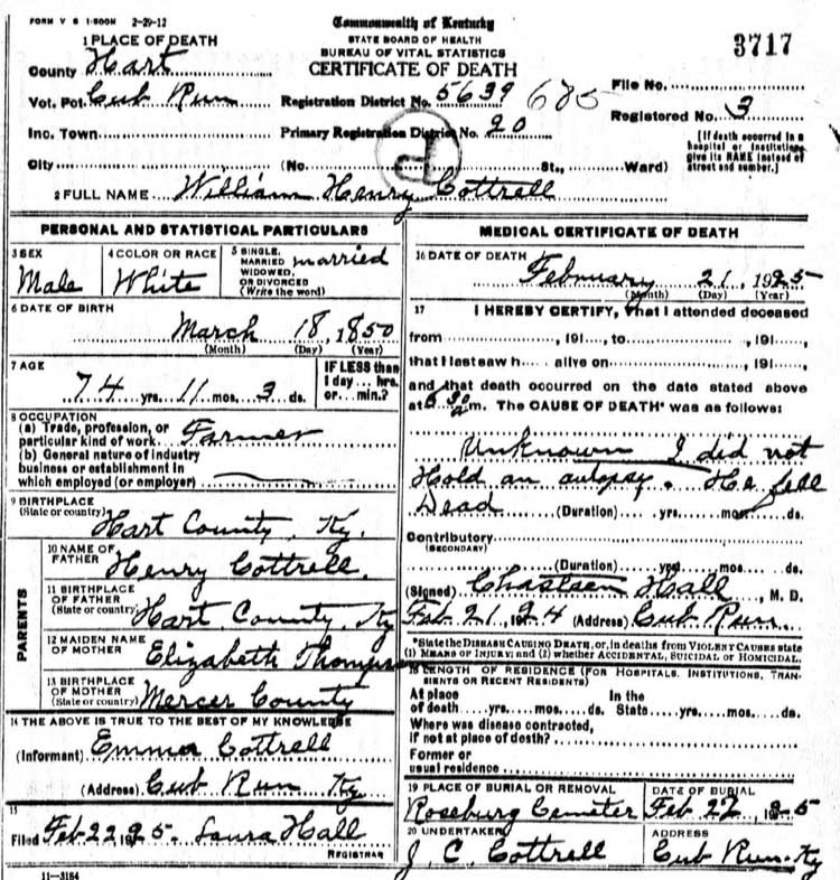 FORM V S 1-500M 2-29-12
Commonwealth of Kentucky
STATE BOARD OF HEALTH
BUREAU OF VITAL STATISTICS
CERTIFICATE OF DEATH
3717
1 PLACE OF DEATH
County Hart
Vot. Pct. Cub Run
Inc. Town
City
Registration District No. 5639 685
Primary Registration District No. 20
(No. St., Ward)
File No.
Registered No. 3
[If death occurred in a
hospital or institution,
give its NAME instead of
street and number.]
2 FULL NAME William Henry Cottrell
PERSONAL AND STATISTICAL PARTICULARS
3 SEX
Male
4 COLOR OR RACE
White
5 SINGLE,
MARRIED married
WIDOWED,
OR DIVORCED
(Write the word)
6 DATE OF BIRTH
March 18, 1850
(Month) (Day) (Year)
7 AGE
74 yrs. 11 mos. 3 ds.
IF LESS than
1 day ... hrs.
or ... min.?
8 OCCUPATION
(a) Trade, profession, or
particular kind of work Farmer
(b) General nature of industry
business or establishment in
which employed (or employer)
9 BIRTHPLACE
(State or country)
Hart County, Ky.
PARENTS
10 NAME OF
FATHER Henry Cottrell.
11 BIRTHPLACE
OF FATHER
(State or country) Hart County, Ky
12 MAIDEN NAME
OF MOTHER Elizabeth Thompson
13 BIRTHPLACE
OF MOTHER
(State or country) Mercer County
14 THE ABOVE IS TRUE TO THE BEST OF MY KNOWLEDGE
(Informant) Emma Cottrell
(Address) Cub Run Ky
15
Filed Feb 22 1925. Laura Hall
REGISTRAR
11-3184
MEDICAL CERTIFICATE OF DEATH
16 DATE OF DEATH
February 21, 1925
(Month) (Day) (Year)
17 I HEREBY CERTIFY, That I attended deceased
from , 191 , to , 191 ,
that I last saw h alive on , 191 ,
and that death occurred on the date stated above
at m. The CAUSE OF DEATH* was as follows:
Unknown I did not
Hold an autopsy. He fell
Dead (Duration) yrs. mos. ds.
Contributory
(SECONDARY)
(Duration) yrs. mos. ds.
(Signed) Hall, M. D.
Feb 21, 1924 (Address) Cub Run.
*State the DISEASE CAUSING DEATH, or, in deaths from VIOLENT CAUSES state
(1) MEANS OF INJURY; and (2) whether ACCIDENTAL, SUICIDAL or HOMICIDAL.
18 LENGTH OF RESIDENCE (FOR HOSPITALS, INSTITUTIONS, TRAN-
SIENTS OR RECENT RESIDENTS)
At place In the
of death yrs. mos. ds. State yrs. mos. ds.
Where was disease contracted,
if not at place of death?
Former or
usual residence
19 PLACE OF BURIAL OR REMOVAL
Roseburg Cemeter
DATE OF BURIAL
Feb 22, 1925
20 UNDERTAKER
J. C. Cottrell
ADDRESS
Cub Run. Ky